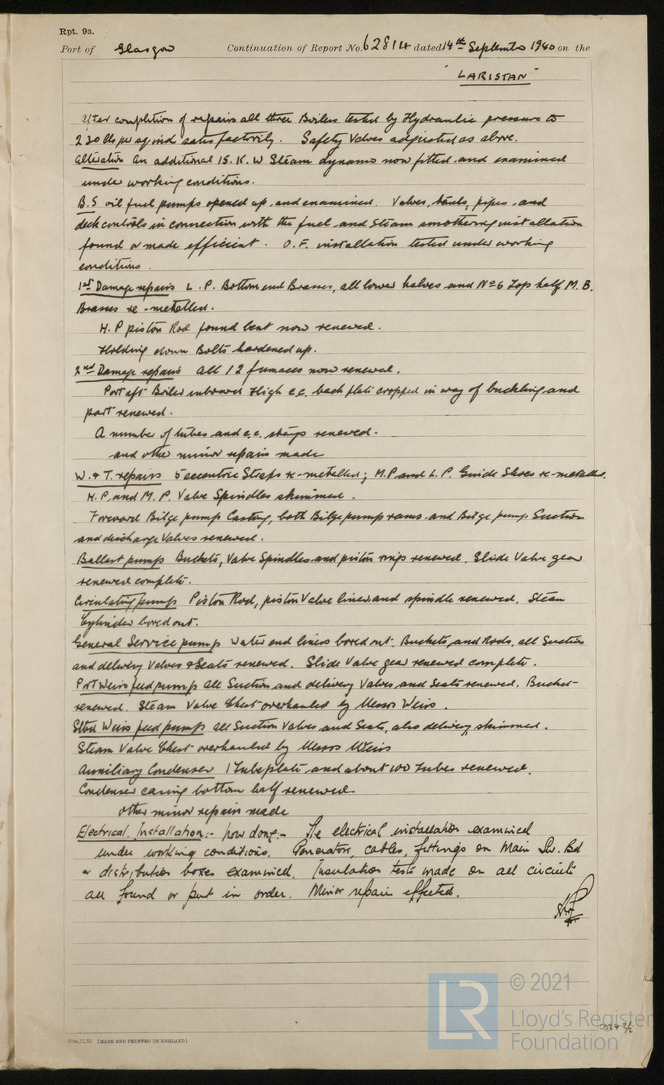 Rpt. 9a.
Port of Glasgow Continuation of Report No. 62814 dated 14th September 1940 on the
"LARISTAN"
After completion of repairs all three Boilers tested by Hydraulic pressure to
230 lbs per sq inch satisfactorily. Safety Valves adjusted as above.
Alteration An additional 15. K. W Steam dynamo now fitted and examined
under working conditions.
B.S oil fuel pumps opened up and examined. Valves, tanks, pipes and
deck controls in connection with the fuel and Steam smothering installation
found or made efficient. O.F. installation tested under working
conditions.
1st Damage repairs L.P. Bottom end Brasses, all lower halves and No 6 Top half M.B.
Brasses re-metalled.
H.P piston Rod found bent now renewed.
Holding down Bolts hardened up.
2nd Damage repairs All 12 furnaces now renewed.
Port aft Boiler inboard High c.c. back plate cropped in way of buckling and
part renewed.
A number of tubes and c.c. stays renewed.
and other minor repairs made
W. & T. repairs 5 eccentric Straps re-metalled; M.P and L.P. Guide Shoes re-metalled.
H.P. and M.P. Valve Spindles skimmed.
Forward Bilge pump Casting, both Bilge pump rams and Bilge pump Suction
and discharge Valves renewed.
Ballast pump Buckets, Valve Spindles and piston rings renewed. Slide Valve gear
renewed complete.
Circulating pump Piston Rod, piston Valve liner and spindle renewed. Steam
Cylinder bored out.
General Service pump Water end liners bored out. Buckets, and Rods, all Suction
and delivery Valves & Seats renewed. Slide Valve gear renewed complete.
Port Weirs feed pump all Suction and delivery Valves, and Seats renewed. Bucket
renewed. Steam Valve Chest overhauled by Messrs Weirs.
Stbd Weirs feed pump all Suction Valves and Seats, also delivery skimmed.
Steam Valve Chest overhauled by Messrs Weirs
Auxiliary Condenser 1 Tubeplate and about 100 Tubes renewed.
Condenser casing bottom half renewed
Other minor repairs made
Electrical Installation:- now done.- The electrical installation examined
under working conditions. Generators, cables, fittings on Main Sw. Bd
& distribution boxes examined. Insulation tests made on all circuits
all found or put in order. Minor repair effected.
(MADE AND PRINTED IN ENGLAND)
LR
© 2021
Lloyd's Register
Foundation